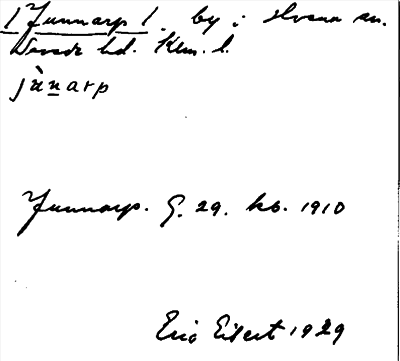 1 Junnarp 1. by i Hvena sn.
hd. Klm. l.
jùnarp
Junnarp. G. 29. kb. 1910
Eric Eilert 1929